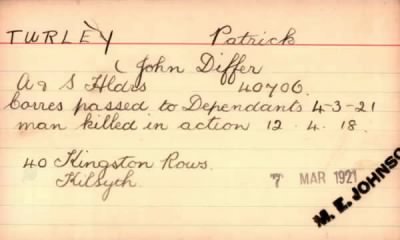 TURLEY Patrick
( John Differ
A & S Hldrs 40706.
Corres passed to Dependants 4-3-21
man killed in action 12. 4. 18.
40 Kingston Rows.
Kilsyth.
7 MAR 1921
M. E. JOHNSO